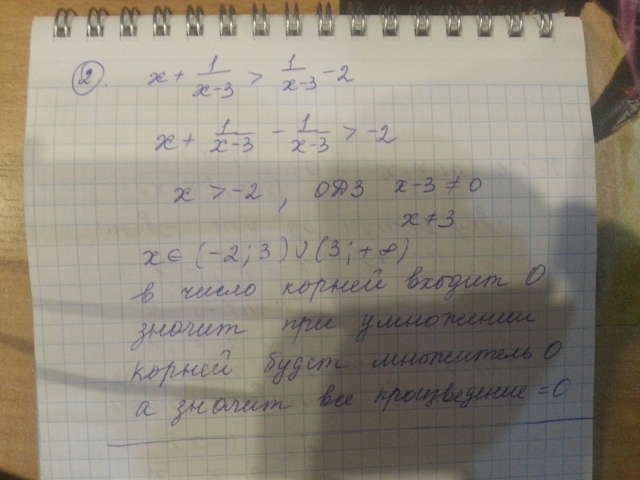 2. x + 1/(x-3) > 1/(x-3) - 2
x + 1/(x-3) - 1/(x-3) > -2
x > -2, ОДЗ x-3 ≠ 0
x ≠ 3
x ∈ (-2; 3) ∪ (3; +∞)
в число корней входит 0
значит при умножении
корней будет множитель 0
а значит все произведение = 0